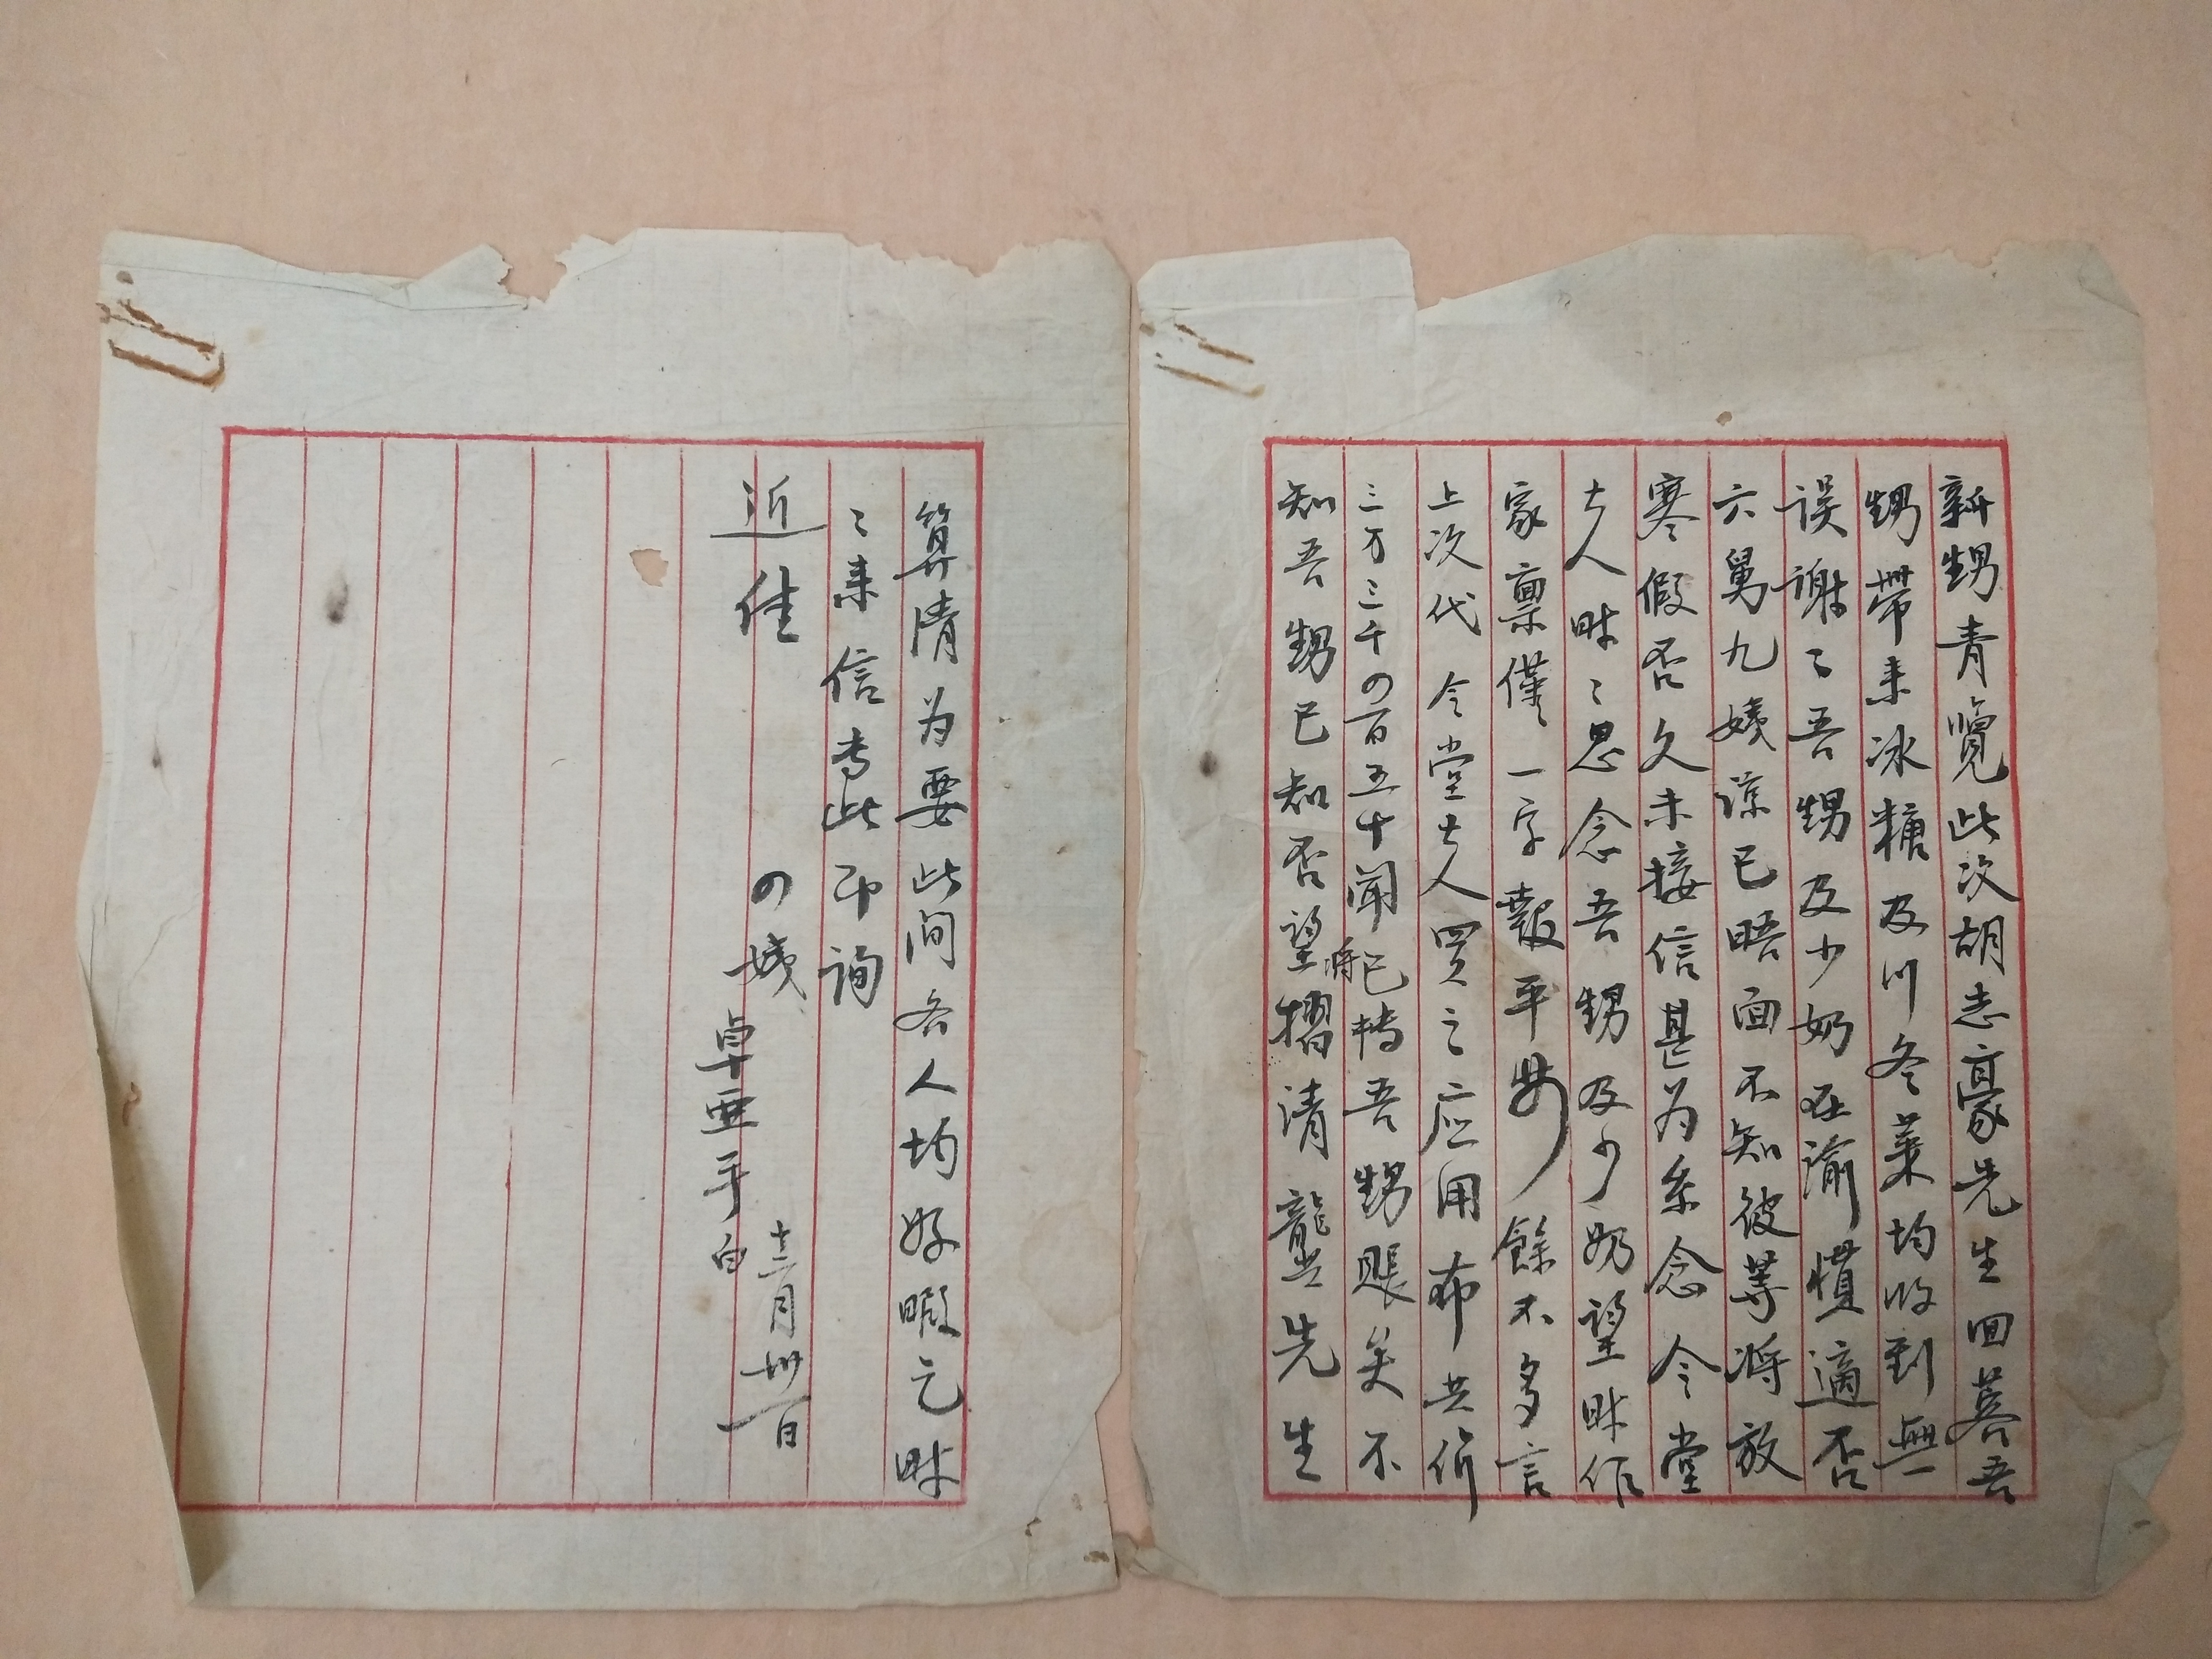 新甥青覽此次胡志豪先生回蓉吾
甥帶来冰糖及川冬菜均收到無
误谢〻吾甥及少奶在渝慣適否
六舅九姨諒已晤面不知彼等將放
寒假否久未接信甚为系念令堂
大人时〻思念吾甥及少奶望时作
家禀僅一字報平安餘不多言
上次代令堂大人買之应用布共价
三万三千〇百五十闻將已转吾甥賬矣不
知吾甥已知否望摺清龍生先生
算清为要此间各人均好暇乞时
〻来信专此即询
近佳
の姨
卓亚手白
十二月卅一日